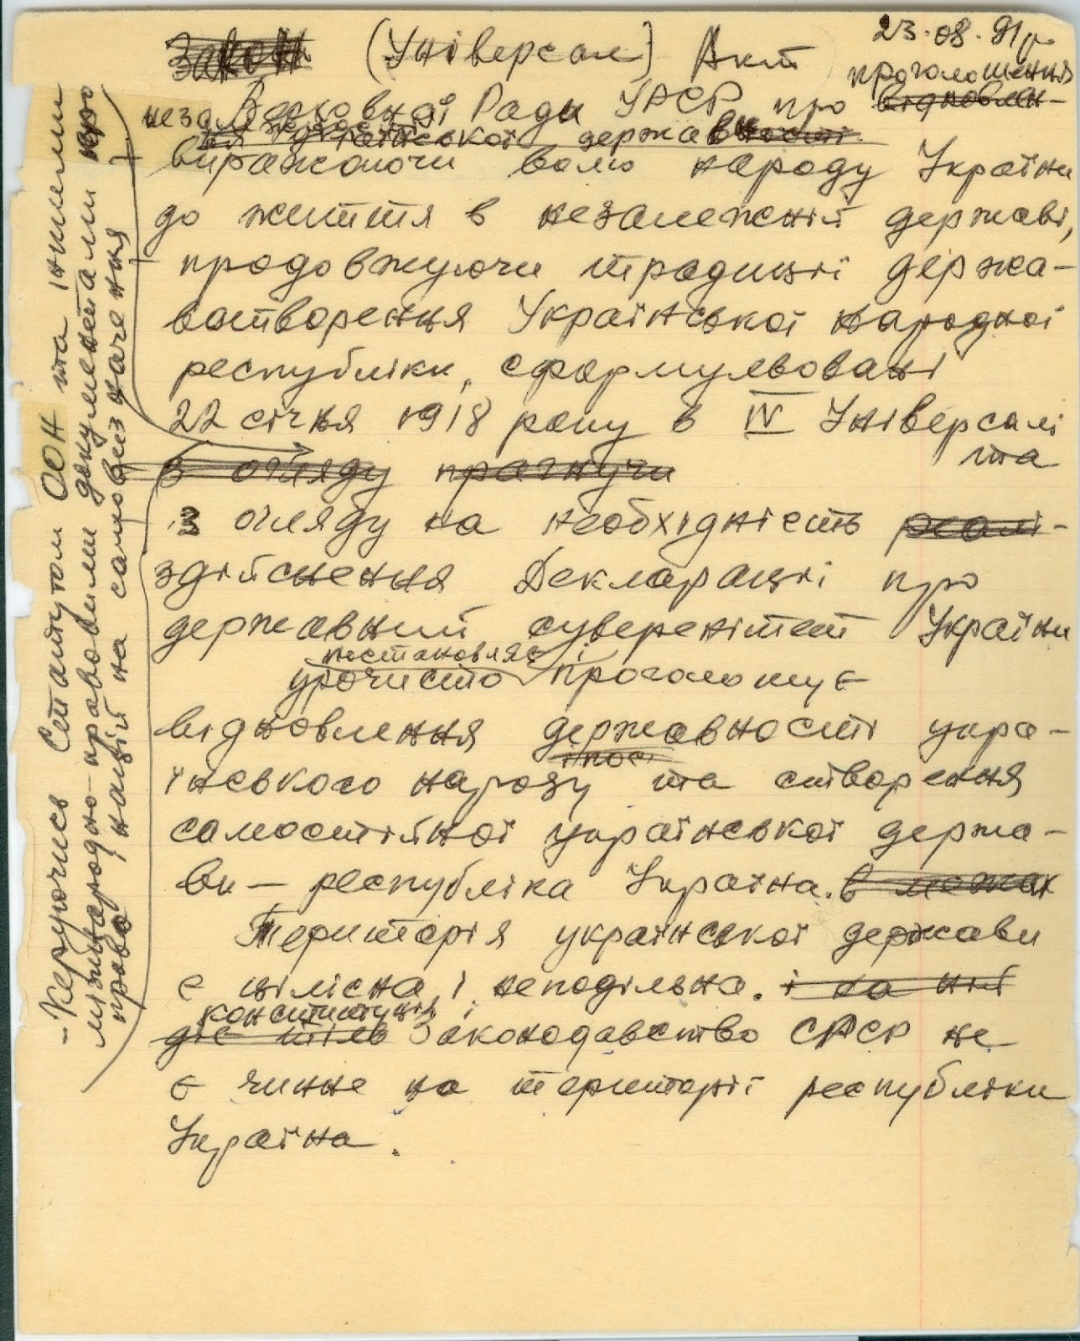 23.08.91р.
Закон (Універсал) Акт
проголошення
Верховної Ради УРСР про відновлен-
ня української державності
виражаючи волю народу України
до життя в незалежній державі,
продовжуючи традиції держа-
вотворення Української народної
республіки, сформульовані
22 січня 1918 року в IV Універсалі
та
з огляду прагнучи
з огляду на необхідність реалі-
здійснення Декларації про
державний суверенітет України
постановляє і
урочисто проголошує
відновлення державності укра-
їнського народу та створення
самостійної української держа-
ви — республіка Україна. в межах
Територія української держави
є цілісна і неподільна. і на ній
конституція і
діє тіль Законодавство СРСР не
є чинне на території республіки
Україна.
- Керуючись Статутом ООН та іншими
міжнародно-правовими документами про
право націй на самовизначення